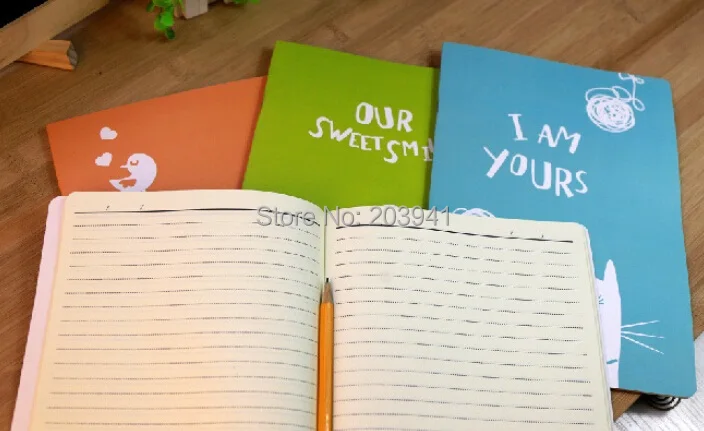 OUR
SWEET SMI
I AM
YOURS
Store No: 203941